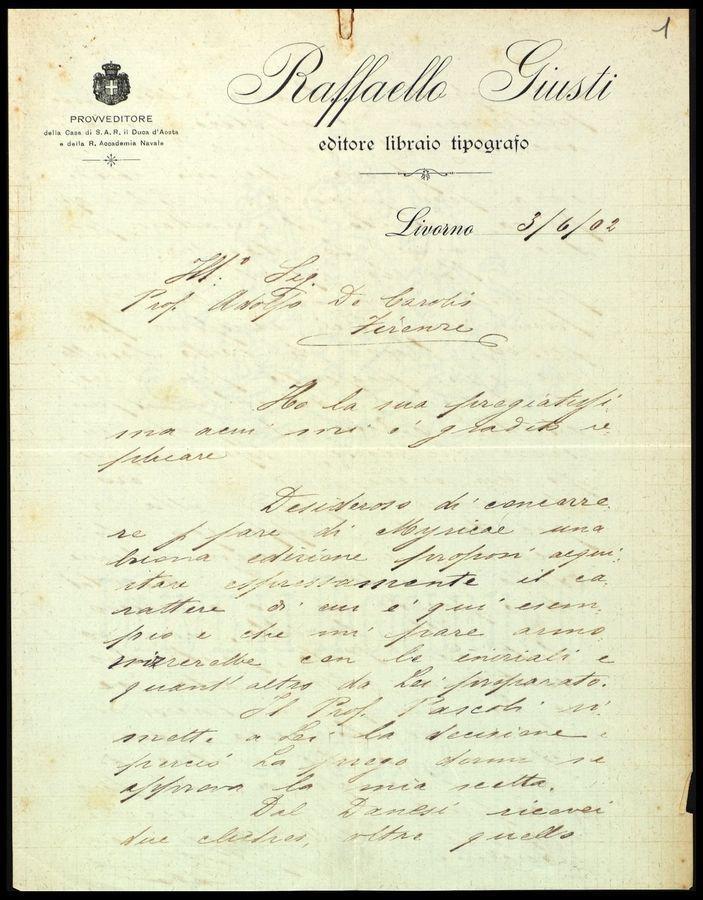 1
Raffaello Giusti
editore libraio tipografo
PROVVEDITORE
della Casa di S. A. R. il Duca d'Aosta
e della R. Accademia Navale
Livorno 3/6/02
Ill.º Sig.
Prof. Adolfo De Carolis
Firenze
Ho la sua pregiatissi
ma a cui mi è gradito re
plicare
Desideroso di concorre
re p fare di Myricae una
buona edizione proposi acqui
stare espressamente il ca
rattere di cui è qui esem
pio e che mi pare armo
nizzerebbe con le iniziali e
quant'altro da Lei preparato.
Il Prof. Pascoli ri
mette a Lei la decisione e
perciò La prego dirmi se
approva la mia scelta.
Dal Danesi ricevei
due clichés, oltre quello